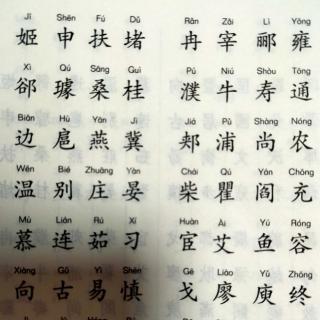 Jī Shēn Fú Dǔ Rǎn Zǎi Lì Yōng
姬 申 扶 堵 冉 宰 郦 雍
Xì Qú Sāng Guì Pú Niú Shòu Tōng
郤 璩 桑 桂 濮 牛 寿 通
Biān Hù Yān Jì Jiá Pǔ Shàng Nóng
边 扈 燕 冀 郏 浦 尚 农
Wēn Bié Zhuāng Yàn Chái Qú Yán Chōng
温 别 庄 晏 柴 瞿 阎 充
Mù Lián Rú Xí Huàn Ài Yú Róng
慕 连 茹 习 宦 艾 鱼 容
Xiàng Gǔ Yì Shèn Gē Liào Yǔ Zhōng
向 古 易 慎 戈 廖 庾 终